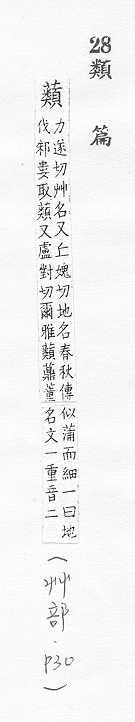 28
類篇
蘱
力遂切艸名又丘媿切地名春秋傳
伐邾婁取蘱又盧對切爾雅蘱薡蕫
似蒲而細一曰地
名文一重音二
(艸部.P30)